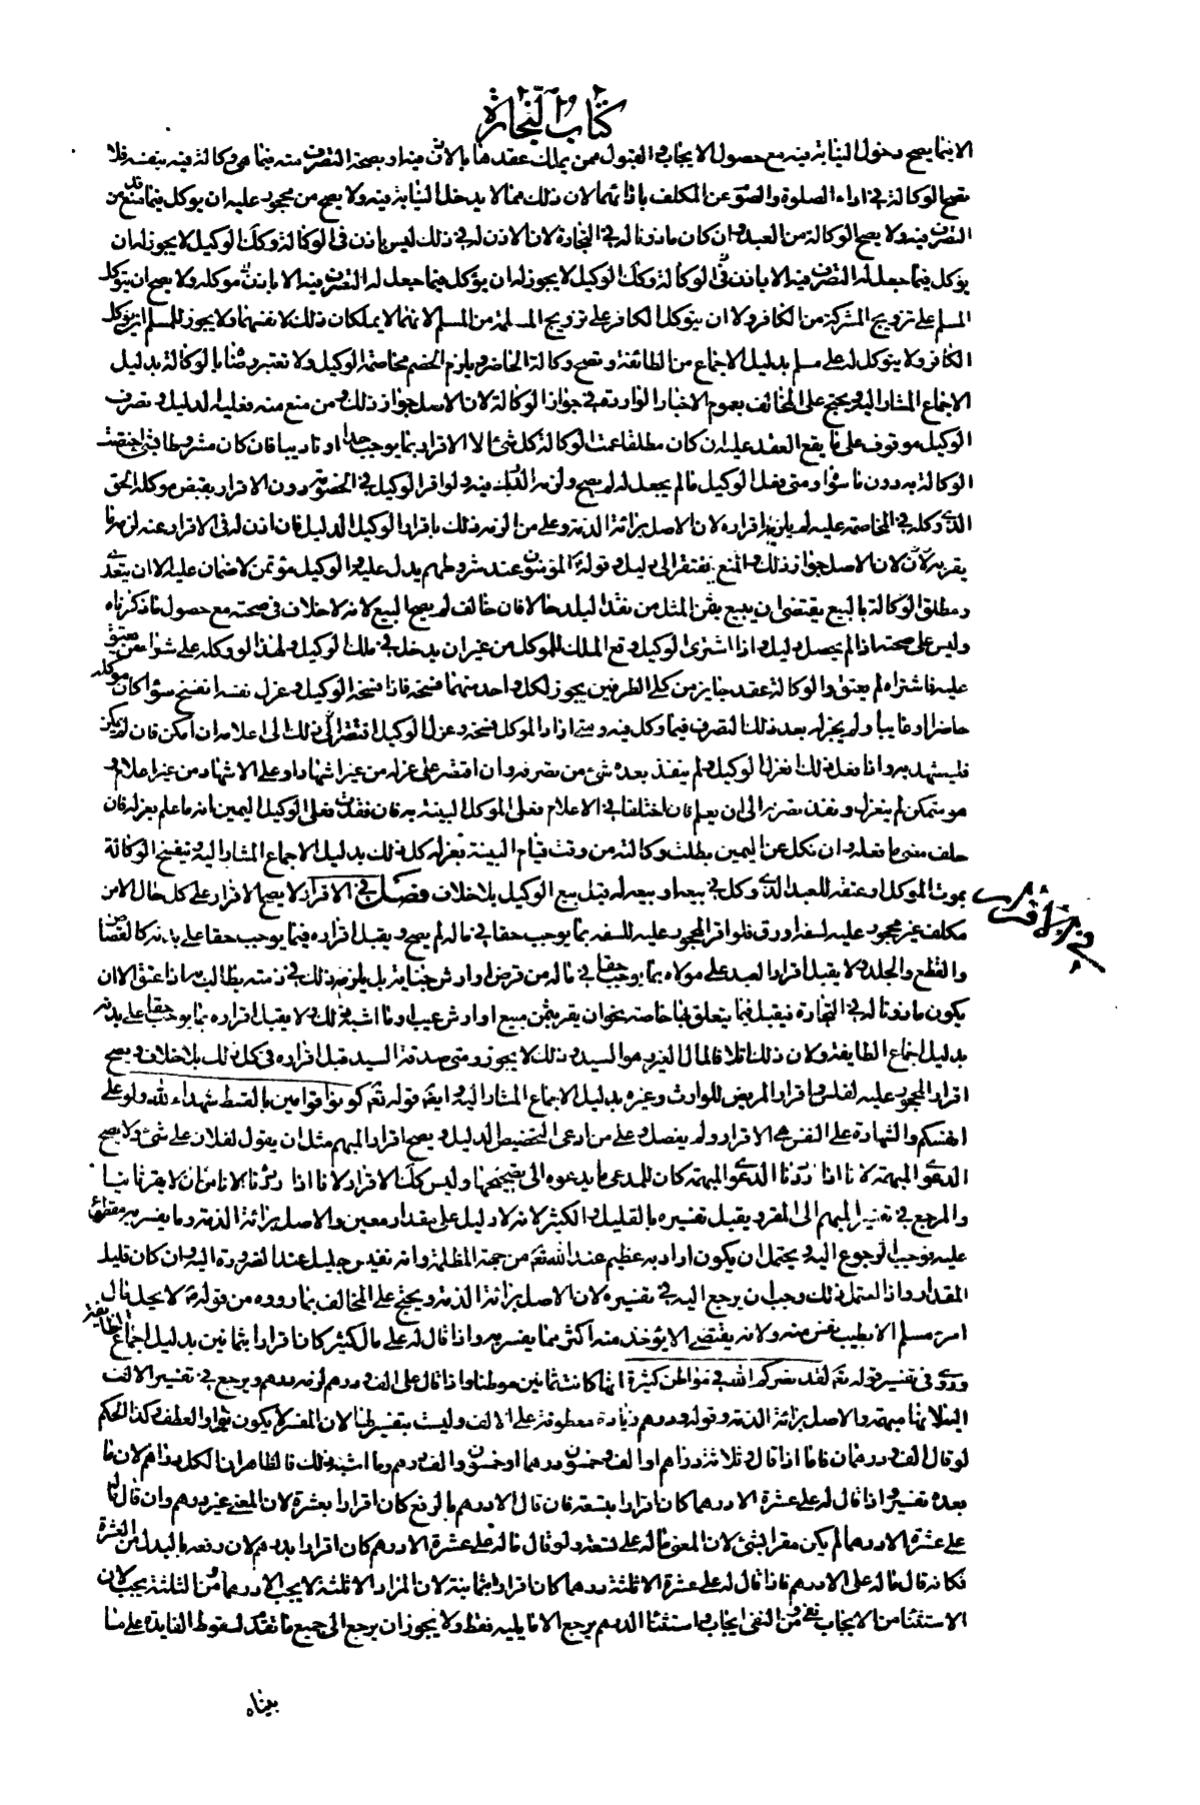 كتاب التجارة
الا فيما يصح دخول النيابة فيه مع حصول الايجاب و القبول ممن يملك عقدها بالاذن فيه او بصحة التصرف منه فيما هى وكالة فيه بنفسه فلا
تصح الوكالة فى اداء الصلوة والصوم عن المكلف باداتهما لان ذلك مما لا يدخل النيابة فيه ولا يصح من محجور عليه ان يوكل فيما قد منع من
التصرف فيه ولا يصح الوكالة من العبد وان كان ماذونا له فى التجارة لان الاذن له فى ذلك ليس باذن فى الوكالة وكذلك الوكيل لا يجوز له ان
يوكل فيما جعل له التصرف فيه الا باذن فى الوكالة وكذلك الوكيل لا يجوز له ان يوكل فيما جعل له التصرف فيه الا باذن موكله ولا يصح ان يتوكل
المسلم على تزويج المشركة من الكافر ولا ان يتوكل الكافر على تزويج المسلمة من المسلم لانهما لا يملكان ذلك لانفسهما ولا يجوز للمسلم ان يوكل
الكافر ولا يتوكل له على مسلم بدليل الاجماع من الطائفة و تصح وكالة الحاضر و يلزم الخصم مخاصمة الوكيل ولا تعتبر رضاه بالوكالة بدليل
الاجماع المشار اليه و يحتج على المخالف بعموم الاخبار الواردة فى جواز الوكالة لان الاصل جواز ذلك و من منع منه فعليه الدليل و تصرف
الوكيل موقوف على ما يقع العقد عليه ان كان مطلقا عمت الوكالة كل شئ الا الاقرار بما يوجب حدا او تاديبا فان كان مشروطا بشئ اختصت
الوكالة به دون ما سواه و متى فعل الوكيل ما لم يجعل له لم يصح ولزمه الدرك فيه ولو اقر الوكيل فى الخصومة دون الاقرار بقبض موكله الحق
الذى وكله فى المخاصمة عليه لم يلزمه اقراره لان الاصل براءة الذمة و على من الزمه ذلك باقرار الوكيل الدليل فان اذن له فى الاقرار عنه لزمه ما
يقر به لان الاصل جواز ذلك و المنع يفتقر الى دليل و قوله المؤمنون عند شروطهم يدل عليه و الوكيل مؤتمن لا ضمان عليه الا ان يتعدى
و مطلق الوكالة بالبيع يقتضى ان يبيع بثمن المثل من نقد البلد حالا فان خالف لم يصح البيع لانه لا خلاف فى صحته مع حصول ما ذكرناه
وليس على صحته اذا لم يحصل دليل و اذا اشترى الوكيل وقع الملك للموكل من غير ان يدخل فى ملك الوكيل و لهذا لو وكله على شراء من يعتق
عليه فاشتراه لم يعتق و الوكالة عقد جايز من كلى الطرفين يجوز لكل واحد منهما فسخه فاذا فسخه الوكيل و عزل نفسه انفسخ سواء كان موكله
حاضرا او غايبا ولم يجز له بعد ذلك التصرف فيما وكل فيه و متى اراد الموكل فسخه و عزل الوكيل افتقر فى ذلك الى اعلامه ان امكن فان لم يمكن
فليشهد به و اذا فعل ذلك انعزل الوكيل ولم ينفذ بعده شئ من تصرفه و ان اقتصر على عزله من غير اشهاد او على الاشهاد من غير اعلام و
هو متمكن لم ينعزل و نفذ تصرفه الى ان يعلم فان اختلفا فى الاعلام فعلى الموكل البينة به فان فقدت فعلى الوكيل اليمين انه ما علم بعزله فان
حلف مضى ما فعله و ان نكل عن اليمين بطلت وكالته من وقت قيام البينة بعزله كل ذلك بدليل الاجماع المشار اليه و تنفسخ الوكالة
بموت الموكل او عتقه للعبد الذى وكل فى بيعه او بيعه له قبل بيع الوكيل بلا خلاف فصل فى الاقرار لا يصح الاقرار على كل حال الا من
فى الاقرار
مكلف غير محجور عليه لسفه او رق فلو اقر المحجور عليه للسفه بما يوجب حقا فى ماله لم يصح و يقبل اقراره فيما يوجب حقا على بدنه كالقصاص
والقطع والجلد ولا يقبل اقرار العبد على مولاه بما يوجب حقا فى ماله من قرض او ارش جناية بل يلزمه ذلك فى ذمته يطالب به اذا عتق الا ان
يكون ماذونا له فى التجارة فيقبل فيما يتعلق بها خاصة نحو ان يقر بثمن مبيع او ارش عيب او ما اشبه ذلك ولا يقبل اقراره بما يوجب حقا على بدنه
بدليل اجماع الطايفة ولان ذلك اتلافا لمال الغير هو السيد و ذلك لا يجوز و متى صدقه السيد قبل اقراره فى كل ذلك بلا خلاف و يصح
اقرار المحجور عليه لفلس و اقرار المريض للوارث و غيره بدليل الاجماع المشار اليه و ايضا قوله تعالى كونوا قوامين بالقسط شهداء لله ولو على
انفسكم و الشهادة على النفس هى الاقرار ولم يفصل و على من ادعى التخصيص الدليل و يصح اقرار المبهم مثل ان يقول لفلان على شئ ولا يصح
الدعوى المبهمة لانا اذا رددنا الدعوى المبهمة كان للمدعى ما يدعوه الى تصحيحها وليس كذلك الاقرار لانا اذا رددناه لا نامن ان لا يقر ثانيا
و المرجع فى تفسير المبهم الى المقر و يقبل تفسيره بالقليل و الكثير لانه لا دليل على مقدار معين و الاصل براءة الذمة و ما يفسر به مقطوع
عليه فوجب الرجوع اليه و يحتمل ان يكون اراد به عظيم عند الله تعالى من جهة المظلمة و انه نفيس جليل عند الضرورة اليه و ان كان قليل
المقدار و اذا احتمل ذلك وجب ان يرجع اليه فى تفسيره لان الاصل براءة الذمة و يحتج على المخالف بما رووه من قوله لا يحل مال
امرئ مسلم الا بطيب نفس منه و لانه يقتضى الا يؤخذ منه اكثر مما يفسر به و اذا قال له على مال كثير كان اقرارا بثمانين بدليل اجماع الطايفة
و روى فى تفسير قوله تعالى لقد نصركم الله فى مواطن كثيرة انها كانت ثمانين موطنا و اذا قال على الف و درهم لزمه درهم و يرجع فى تفسير الالف
اليه لانها مبهمة و الاصل براءة الذمة و قوله و درهم زيادة معطوفة على الالف و ليست بتفسير لها لان المفسر لا يكون بواو العطف و كذا الحكم
لو قال الف و درهمان فاما اذا قال و ثلاثة دراهم او الف و خمسون درهما او خمسون و الف درهم و ما اشبه ذلك فالظاهر ان الكل دراهم لان ما
بعده تفسير و اذا قال له على عشرة الا درهما كان اقرارا بتسعة فان قال الا درهم بالرفع كان اقرارا بعشرة لان المعنى غير درهم و ان قال ما له
على عشرة الا درهما لم يكن مقرا بشئ لان المعنى ما له على تسعة و لو قال ما له على عشرة الا درهم كان اقرارا بدرهم لان رفعه بالبدل من العشرة
فكانه قال ما له على الا درهم فاذا قال له على عشرة الا ثلثة الا درهما كان اقرارا بثمانية لان المراد الا ثلثة لا يجب الا درهما من الثلثة يجب لان
الاستثناء من الايجاب نفى و من النفى ايجاب و استثناء الدرهم يرجع الا ما يليه فقط ولا يجوز ان يرجع الى جميع ما تقدم لسقوط الفايدة على ما
بيناه